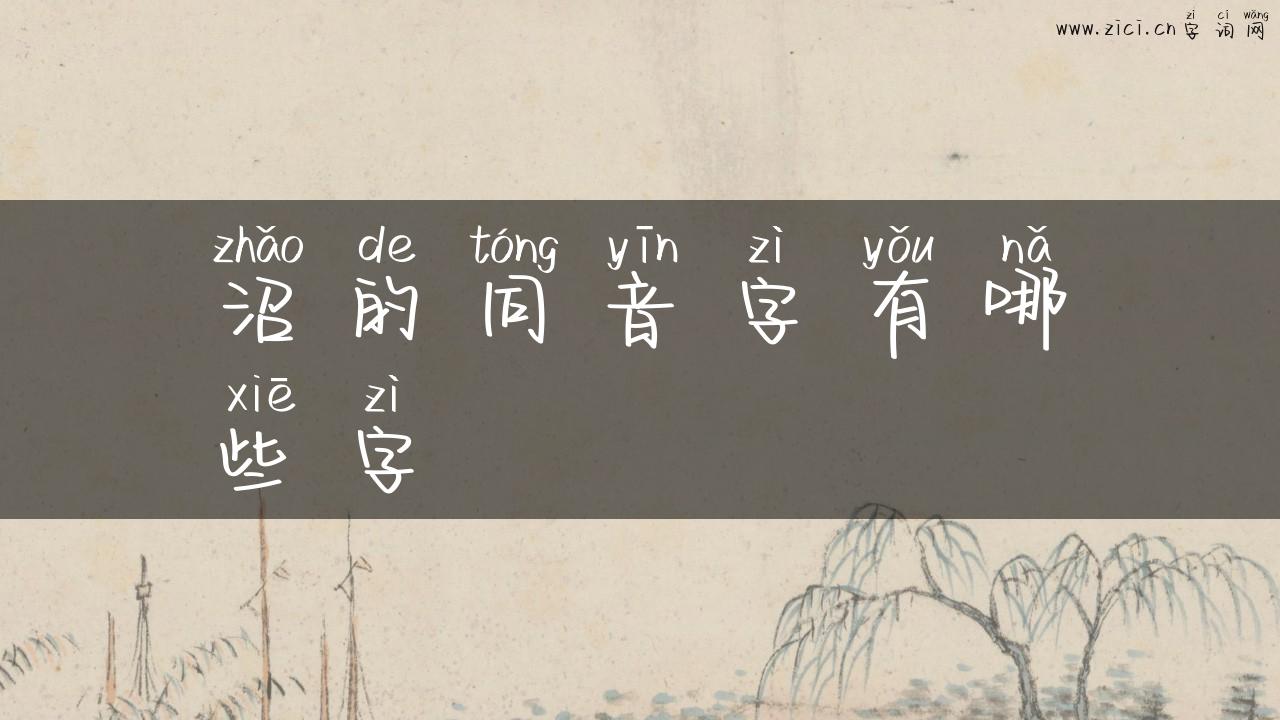 zì cí wǎng
www.zici.cn 字 词 网
zhǎo de tóng yīn zì yǒu nǎ
沼 的 同 音 字 有 哪
xiē zì
些 字